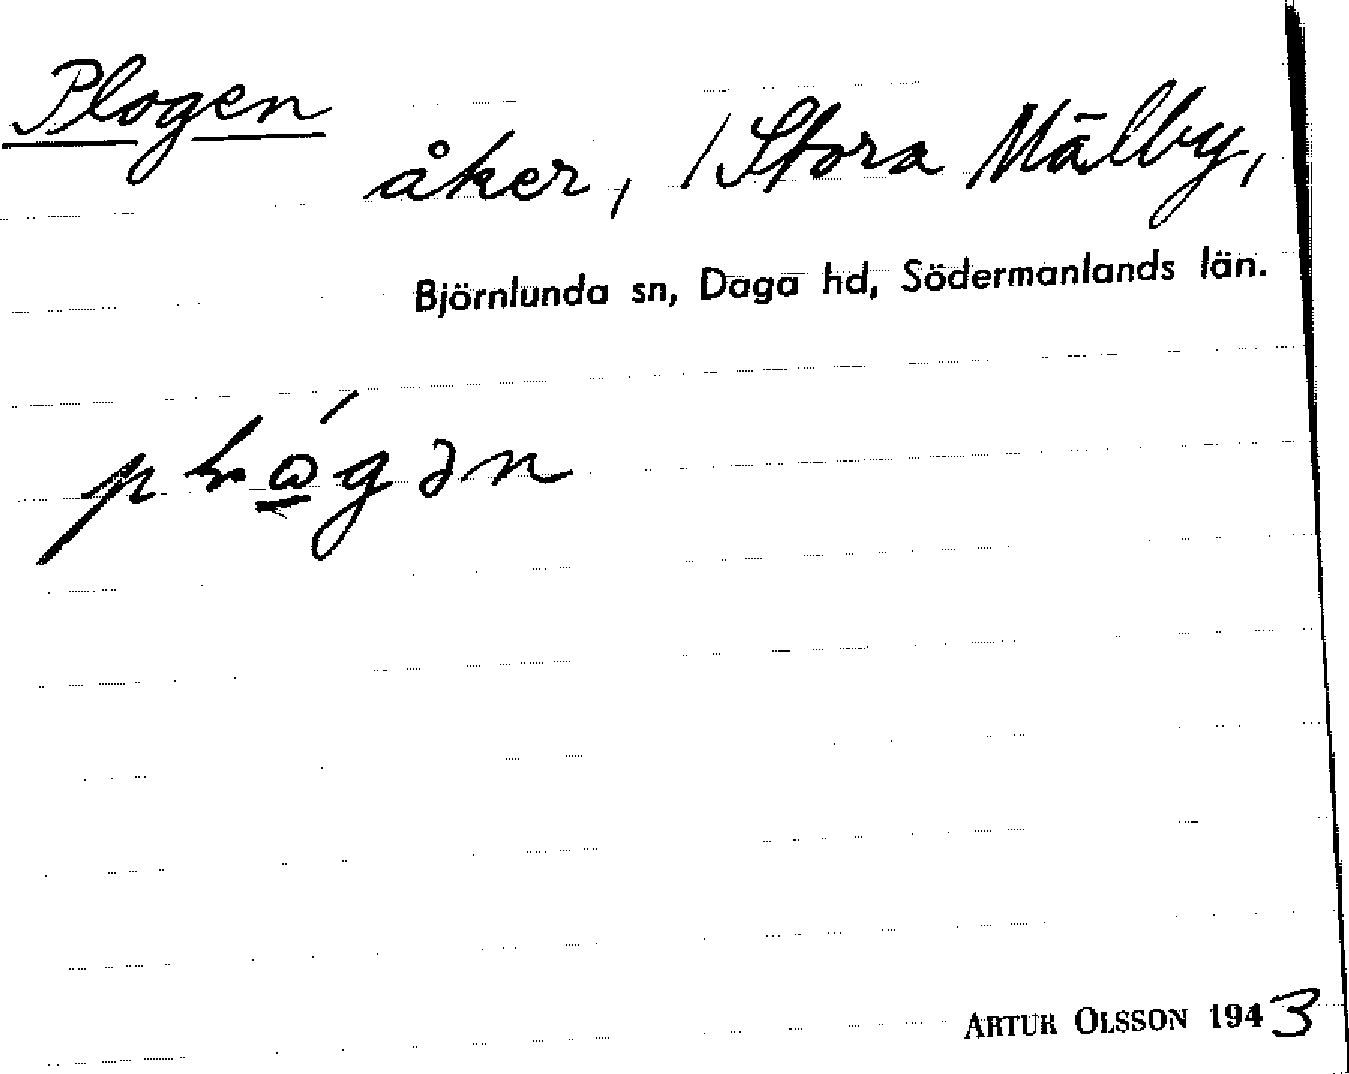 Plogen
åker, / Stora Mälby,
Björnlunda sn, Daga hd, Södermanlands län.
ARTUR OLSSON 1943